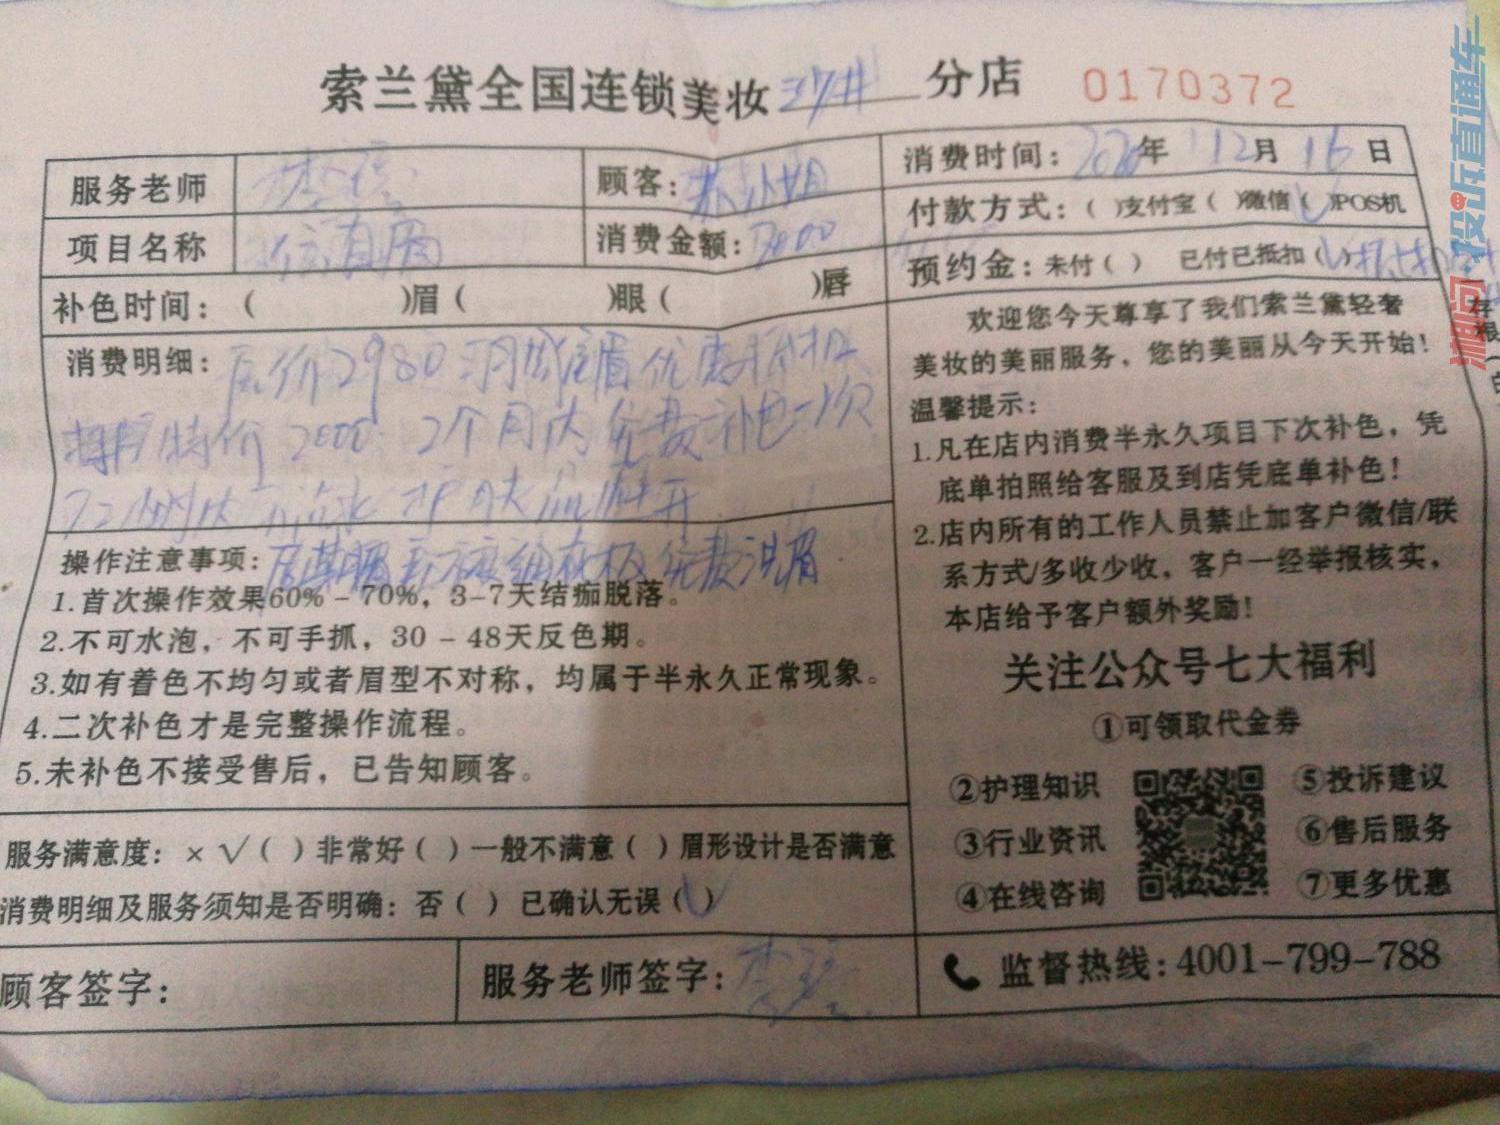 索兰黛全国连锁美妆 分店 0170372
服务老师 顾客：
项目名称 消费金额：
消费时间： 2020年 12月 16日
付款方式：（ ）支付宝（ ）微信（√）POS机
预约金：未付（ ） 已付已抵扣（√）
补色时间：（ ）眉（ ）眼（ ）唇
消费明细：原价2980 优惠
特价 2000 2个月内免费补色一次
操作注意事项： 免费洗眉
1.首次操作效果60%－70%，3-7天结痂脱落。
2.不可水泡，不可手抓，30－48天反色期。
3.如有着色不均匀或者眉型不对称，均属于半永久正常现象。
4.二次补色才是完整操作流程。
5.未补色不接受售后，已告知顾客。
服务满意度：×√（ ）非常好（ ）一般不满意（ ）眉形设计是否满意
消费明细及服务须知是否明确：否（ ）已确认无误（√）
顾客签字： 服务老师签字：
欢迎您今天尊享了我们索兰黛轻奢
美妆的美丽服务，您的美丽从今天开始！
温馨提示：
1.凡在店内消费半永久项目下次补色，凭
底单拍照给客服及到店凭底单补色！
2.店内所有的工作人员禁止加客户微信/联
系方式/多收少收，客户一经举报核实，
本店给予客户额外奖励！
关注公众号七大福利
①可领取代金券
②护理知识 ⑤投诉建议
③行业资讯 ⑥售后服务
④在线咨询 ⑦更多优惠
监督热线：4001-799-788
存根
湘问 投诉直通车